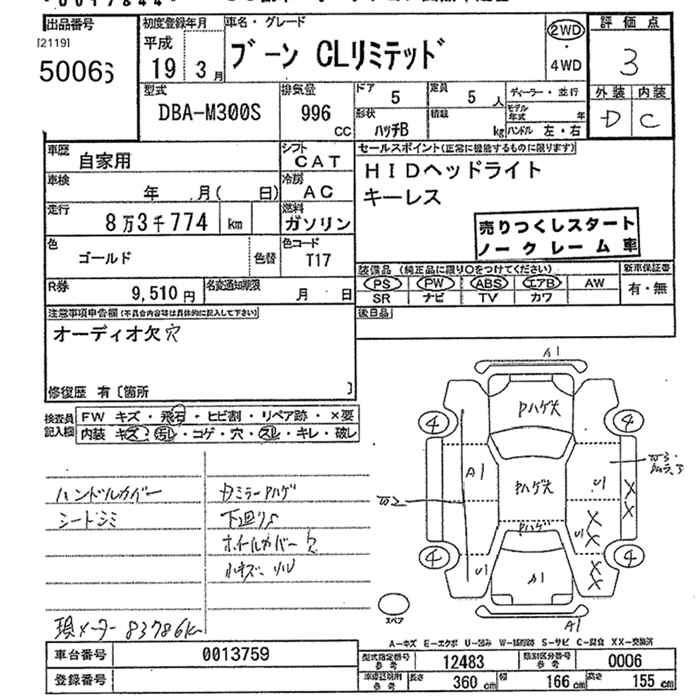 出品番号
[2119]
50066
初度登録年月
平成
19年 3月
車名・グレード
ブーン CLリミテッド
2WD
・
4WD
評価点
3
外装 内装
D C
型式
DBA-M300S
排気量
996
CC
ドア
5
定員
5 人
形状
ハッチB
積載
kg
ディーラー・並行
モデル年式 年
ハンドル 左・右
車歴
自家用
シフト
CAT
車検
年 月( 日)
冷房
AC
走行
8万3千774 km
燃料
ガソリン
色
ゴールド
色替
色コード
T17
R券
9,510円
名変通知期限
月 日
セールスポイント(正常に機能するものに限ります)
HIDヘッドライト
キーレス
売りつくしスタート
ノークレーム車
装備品 (純正品に限り○をつけてください)
PS PW ABS エアB AW
SR ナビ TV カワ
新車保証書
有・無
後日品
注意事項申告欄(不具合内容等は具体的に記入して下さい)
オーディオ欠穴
修復歴 有〔箇所 〕
検査員記入欄
FW キズ・飛石・ヒビ割・リペア跡・×要
内装 キズ・汚レ・コゲ・穴・スレ・キレ・破レ
ハンドルカバー
シートシミ
ミラーAハゲ
下廻りS
ホイールカバー欠
小キズ、小U
現メーター 83786K
A1
Pハゲ大
4
4
A1
Pハゲ大
U1
W2
W3
XX
U1
XX
XX
Pハゲ
4
4
U1
A1
A1
スペア
A-キズ E-エクボ U-凹み W-補修跡 S-サビ C-腐食 XX-交換済
車台番号
0013759
登録番号
型式指定番号 参考
12483
類別区分番号 参考
0006
車検証説明用 参考
長さ 360 cm
幅 166 cm
高さ 155 cm